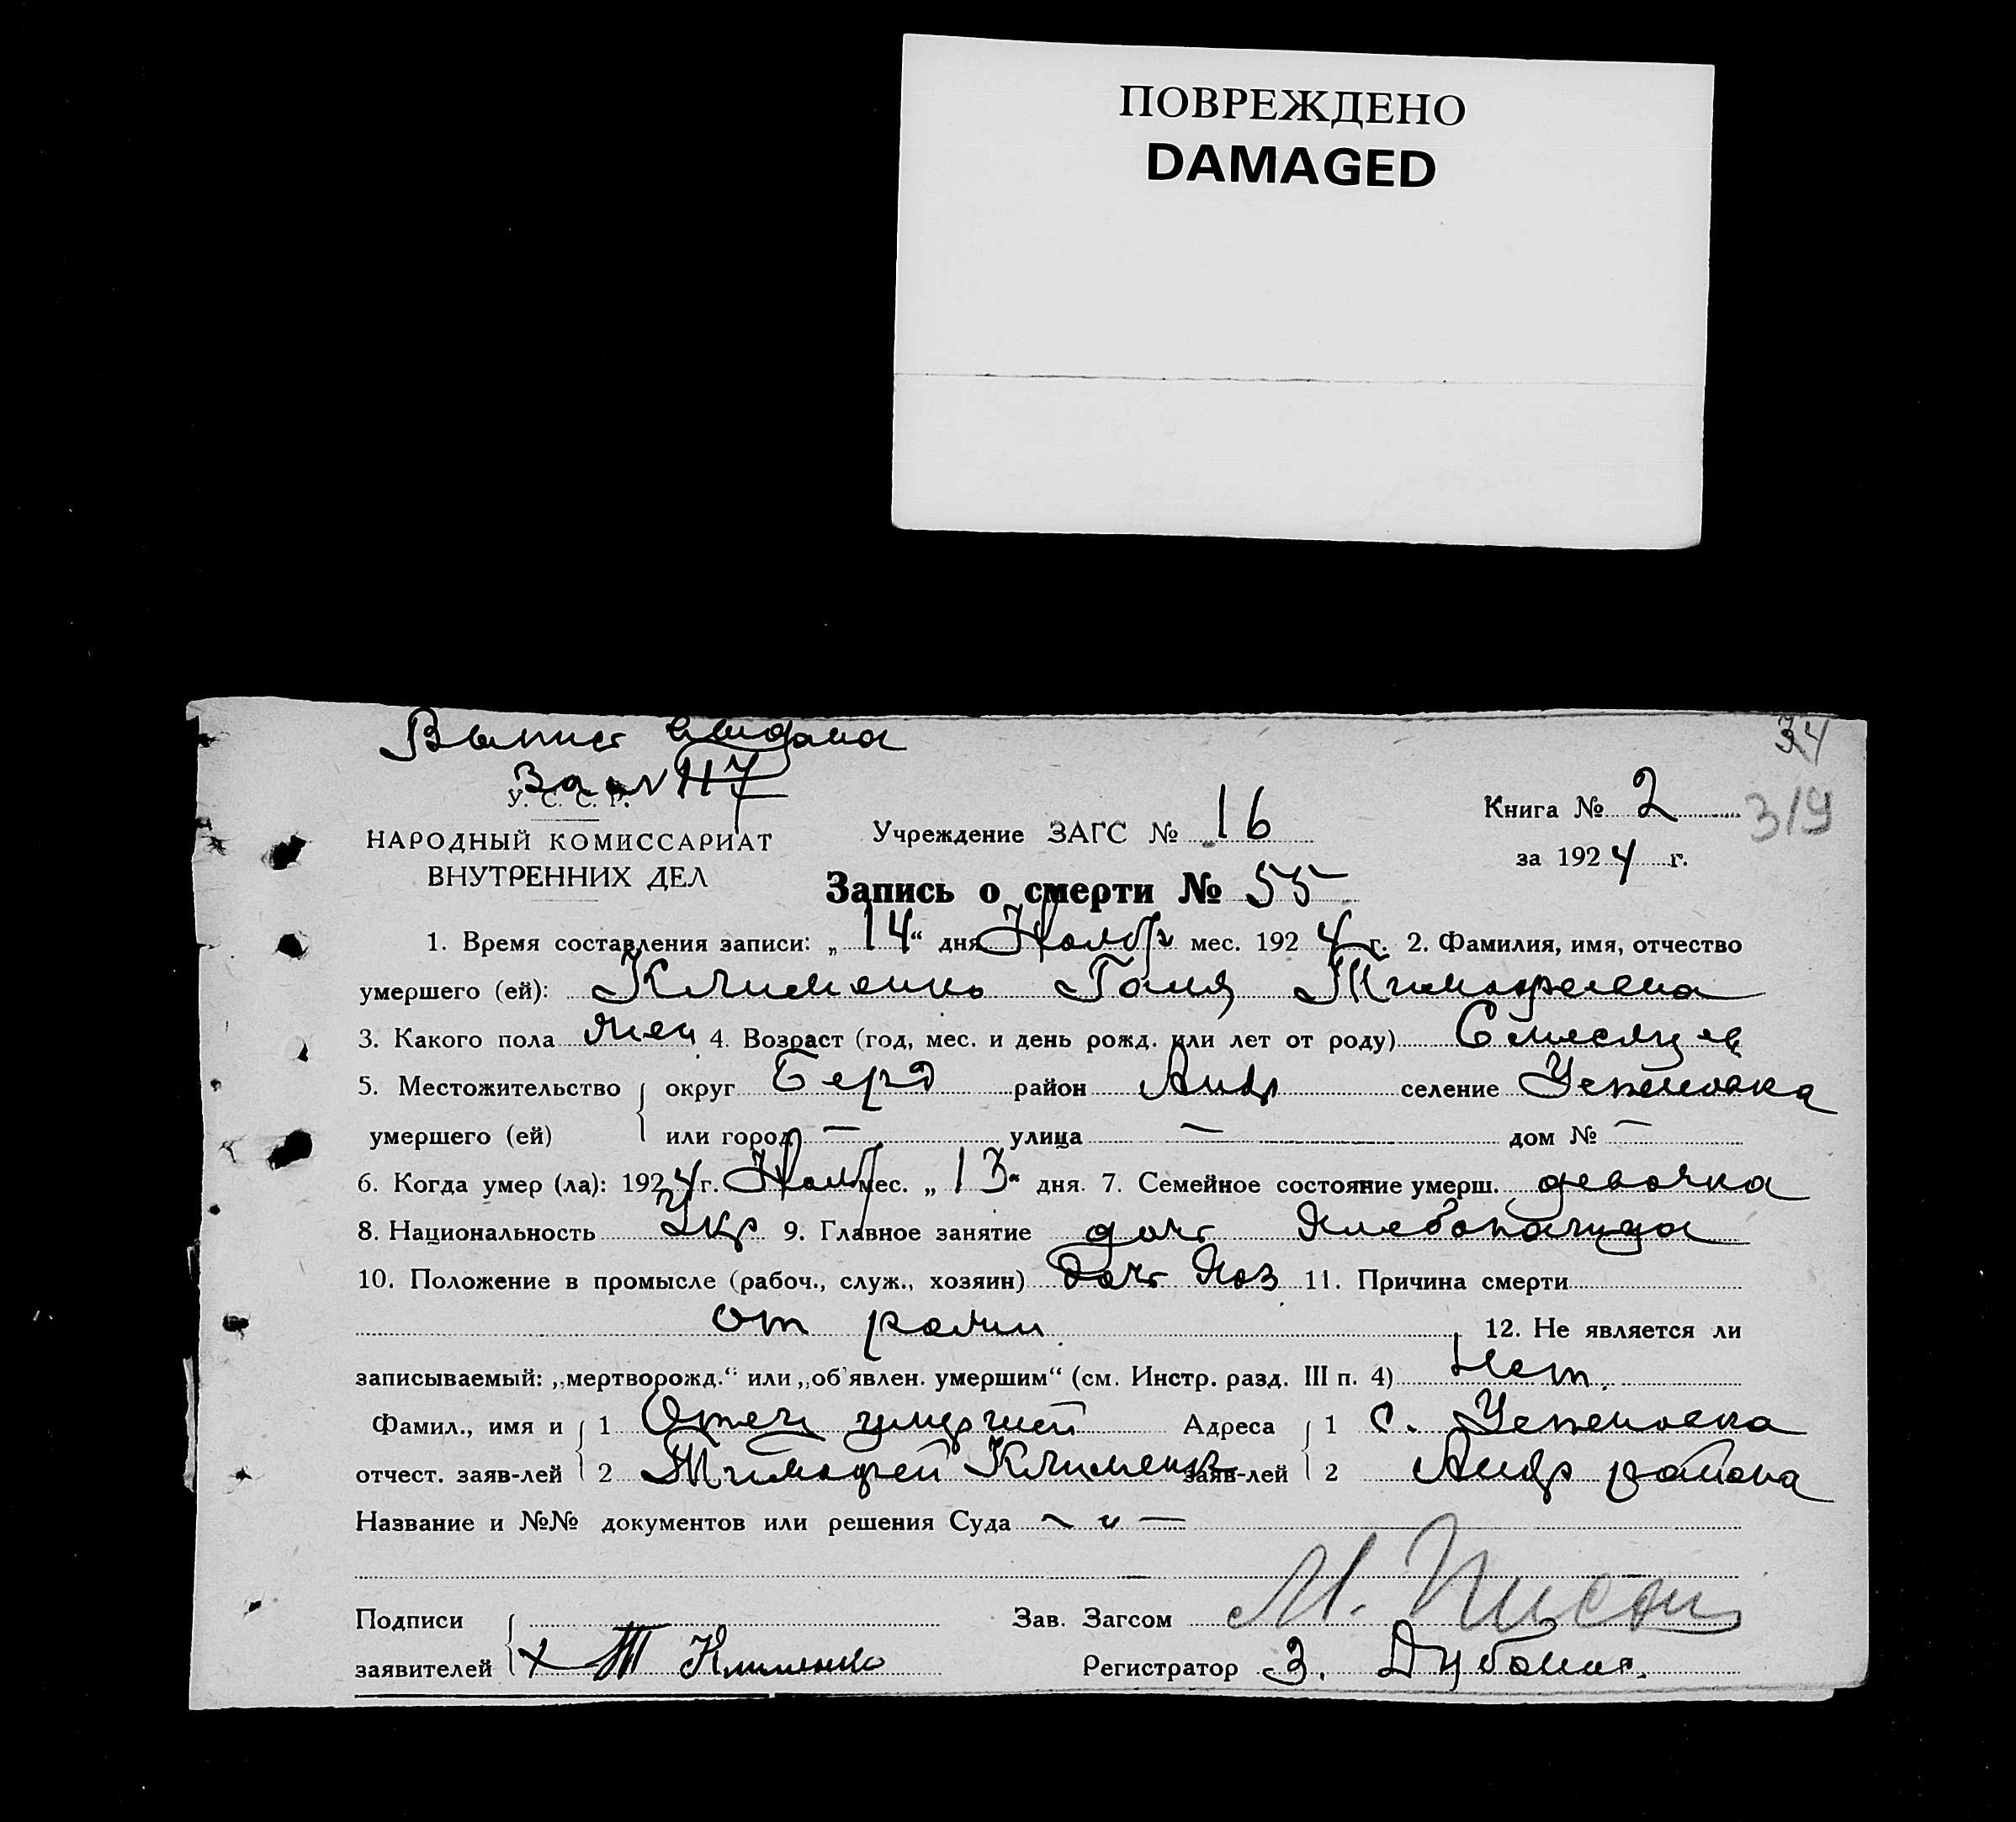 ПОВРЕЖДЕНО
DAMAGED
Выпис выдана
За № 117
34
У. С. С. Р.
НАРОДНЫЙ КОМИССАРИАТ
ВНУТРЕННИХ ДЕЛ
Учреждение ЗАГС № 16
Книга № 2
319
за 1924 г.
Запись о смерти № 55
1. Время составления записи: „14“ дня Ноябр мес. 1924 г. 2. Фамилия, имя, отчество
умершего (ей): Клименко Галя Тимофеевна
3. Какого пола жен 4. Возраст (год, мес. и день рожд. или лет от роду) 6 месяцев
5. Местожительство округ Берд район Андр селение Успеновка
умершего (ей) или город — улица — дом № —
6. Когда умер (ла): 1924 г. Ноябр мес. „13“ дня. 7. Семейное состояние умерш. девочка
8. Национальность Укр 9. Главное занятие доч хлебопашца
10. Положение в промысле (рабоч., служ., хозяин) Доч Хоз 11. Причина смерти
от
12. Не является ли
записываемый: „мертворожд.“ или „об'явлен. умершим“ (см. Инстр. разд. III п. 4) Нет.
Фамил., имя и 1 Отец умершей Адреса 1 с. Успеновка
отчест. заяв-лей 2 Тимофей Клименко заяв-лей 2 Андр района
Название и №№ документов или решения Суда — „ —
Подписи Зав. Загсом М.
заявителей х Т Клименко Регистратор З.